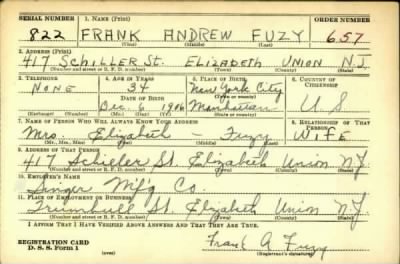 SERIAL NUMBER 1. NAME (Print) ORDER NUMBER
822 FRANK ANDREW FUZY 657
(First) (Middle) (Last)
2. ADDRESS (Print)
417 SCHILLER ST. ELIZABETH UNION N.J.
(Number and street or R. F. D. number) (Town) (County) (State)
3. TELEPHONE 4. AGE IN YEARS 5. PLACE OF BIRTH 6. COUNTRY OF CITIZENSHIP
NONE 34 New York City
DATE OF BIRTH (Town or county)
Dec. 6 1906 Manhattan U S
(Exchange) (Number) (Mo.) (Day) (Yr.) (State or country)
7. NAME OF PERSON WHO WILL ALWAYS KNOW YOUR ADDRESS 8. RELATIONSHIP OF THAT PERSON
Mrs. Elizabeth - Fuzy WIFE
(Mr., Mrs., Miss) (First) (Middle) (Last)
9. ADDRESS OF THAT PERSON
417 Schiller St. Elizabeth Union NJ
(Number and street or R. F. D. number) (Town) (County) (State)
10. EMPLOYER'S NAME
Singer M'f'g Co.
11. PLACE OF EMPLOYMENT OR BUSINESS
Trumbull St. Elizabeth Union NJ
(Number and street or R. F. D. number) (Town) (County) (State)
I AFFIRM THAT I HAVE VERIFIED ABOVE ANSWERS AND THAT THEY ARE TRUE.
REGISTRATION CARD Frank A Fuzy
D. S. S. Form 1 (over) (Registrant's signature)